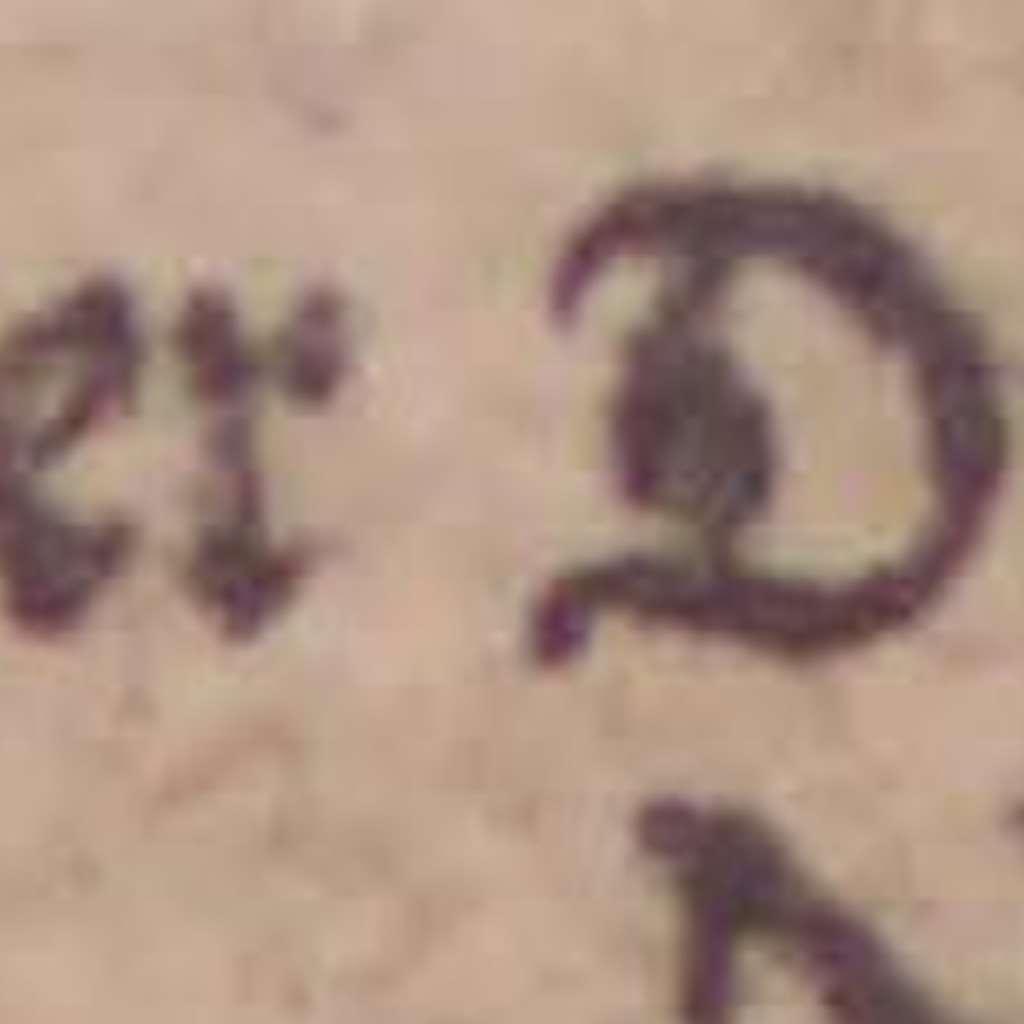 er D